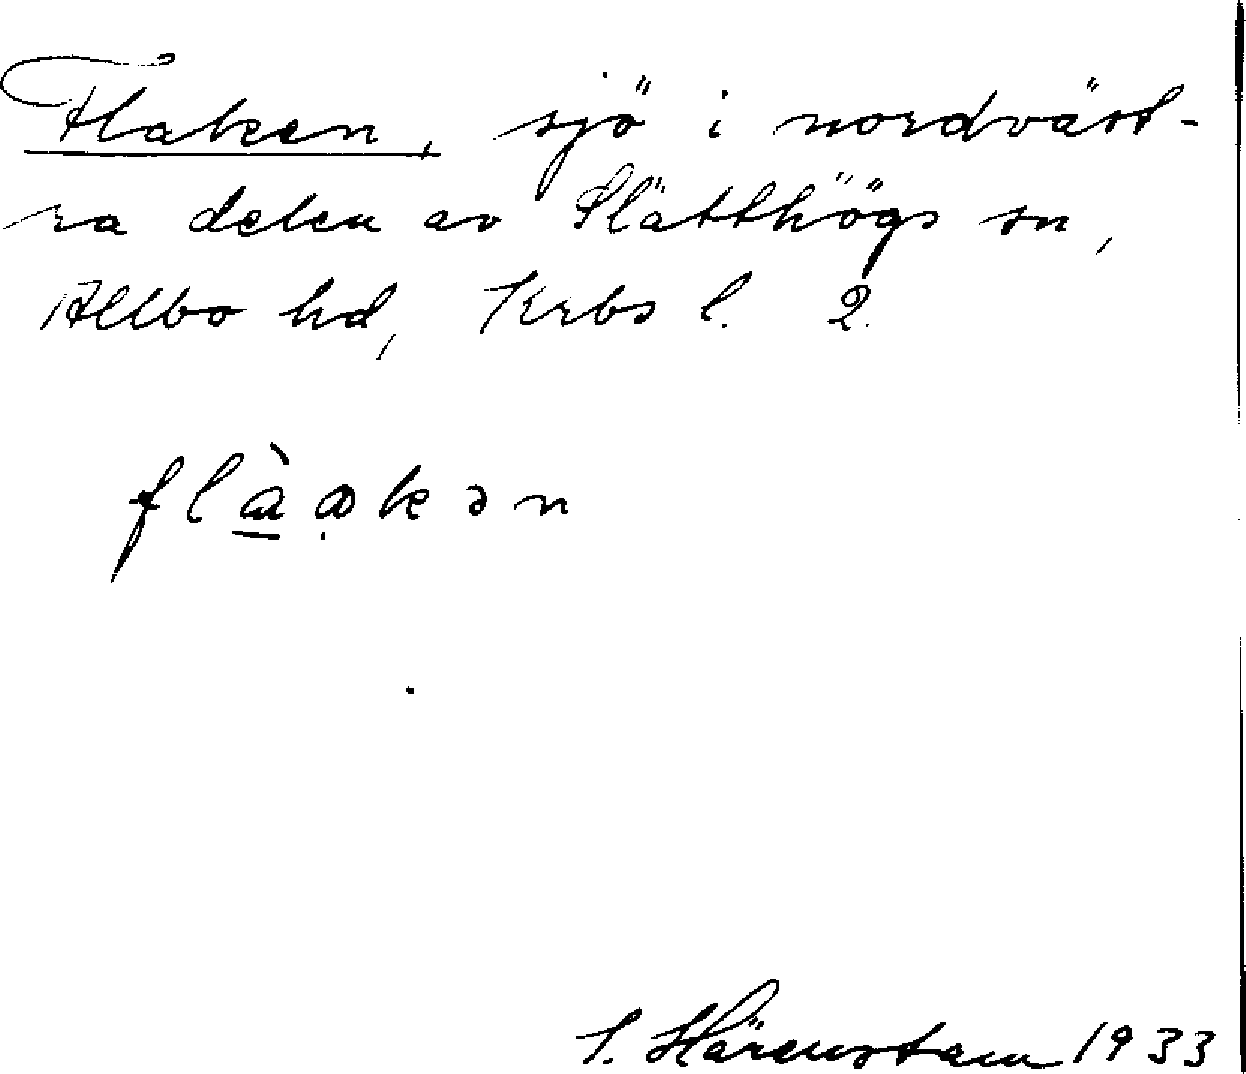 Flaken, sjö i nordväst-
ra delen av Slätthögs sn,
Allbo hd, Krbs l. 2.
S. Härenstam 1933